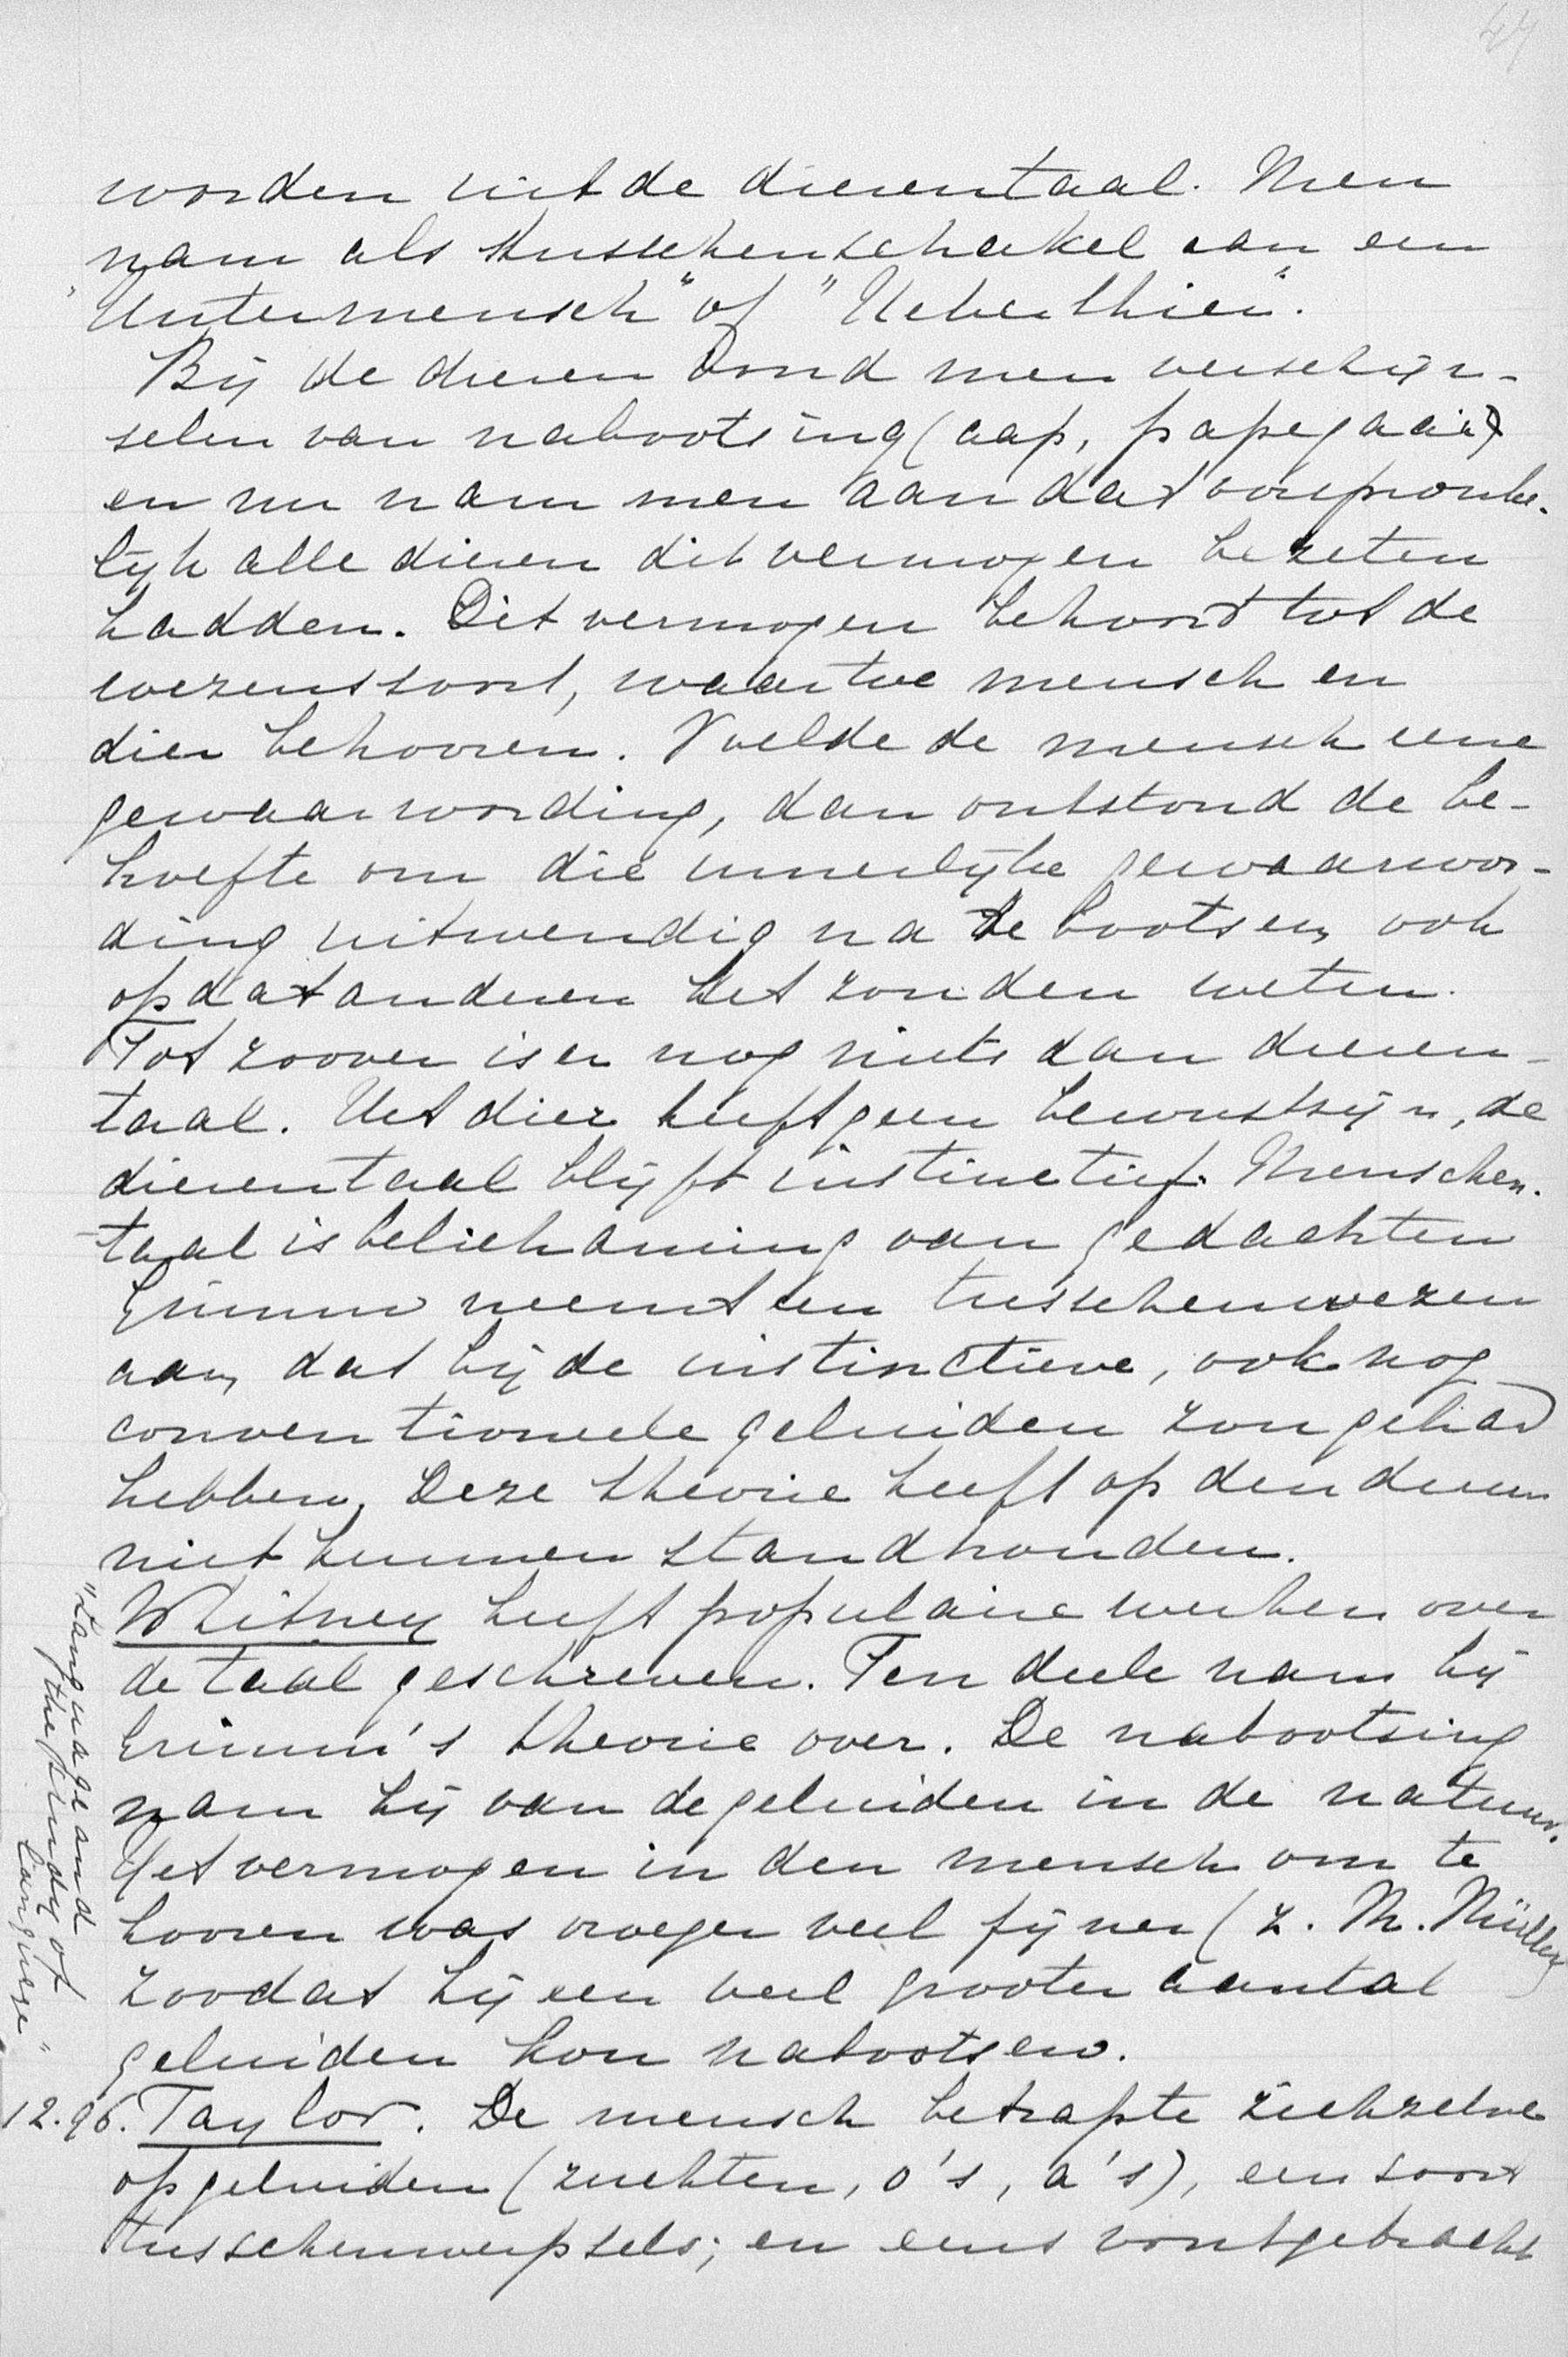 47
worden uit de dierentaal. Men
nam als tusschenschakel aan een
"Untermensch" of "Ueberthier".
Bij de dieren vond men verschijn-
selen van nabootsing (aap, papegaai)
en nu nam men aan dat oorspronke-
lijk alle dieren dit vermogen bezeten
hadden. Dit vermogen behoort tot de
wezenssoort, waartoe mensch en
dier behooren. Voelde de mensch eene
gewaarwording, dan ontstond de be-
hoefte om die innerlijke gewaarwor-
ding uitwendig na te bootsen, ook
opdat anderen het zouden weten.
Tot zoover is er nog niets dan dieren-
taal. Het dier heeft geen bewustzijn, de
dierentaal blijft instinctief. Menschen-
taal is belichaming van gedachten
Grimm neemt een tusschenwezen
aan, dat bij de instinctieve, ook nog
conventioneele geluiden zou gehad
hebben. Deze theorie heeft op den duur
niet kunnen standhouden.
Whitney heeft populaire werken over
de taal geschreven. Ten deele nam hij
Grimm's theorie over. De nabootsing
nam hij van de geluiden in de natuur.
Het vermogen in den mensch om te
hooren was vroeger veel fijner (z. M. Müller)
zoodat hij een veel grooter aantal
geluiden kon nabootsen.
"Language and
the study of
language"
12.96. Taylor. De mensch betrapte zichzelve
op geluiden (zuchten, o's, a's), een soort
tusschenwerpsels; en eens voortgebracht